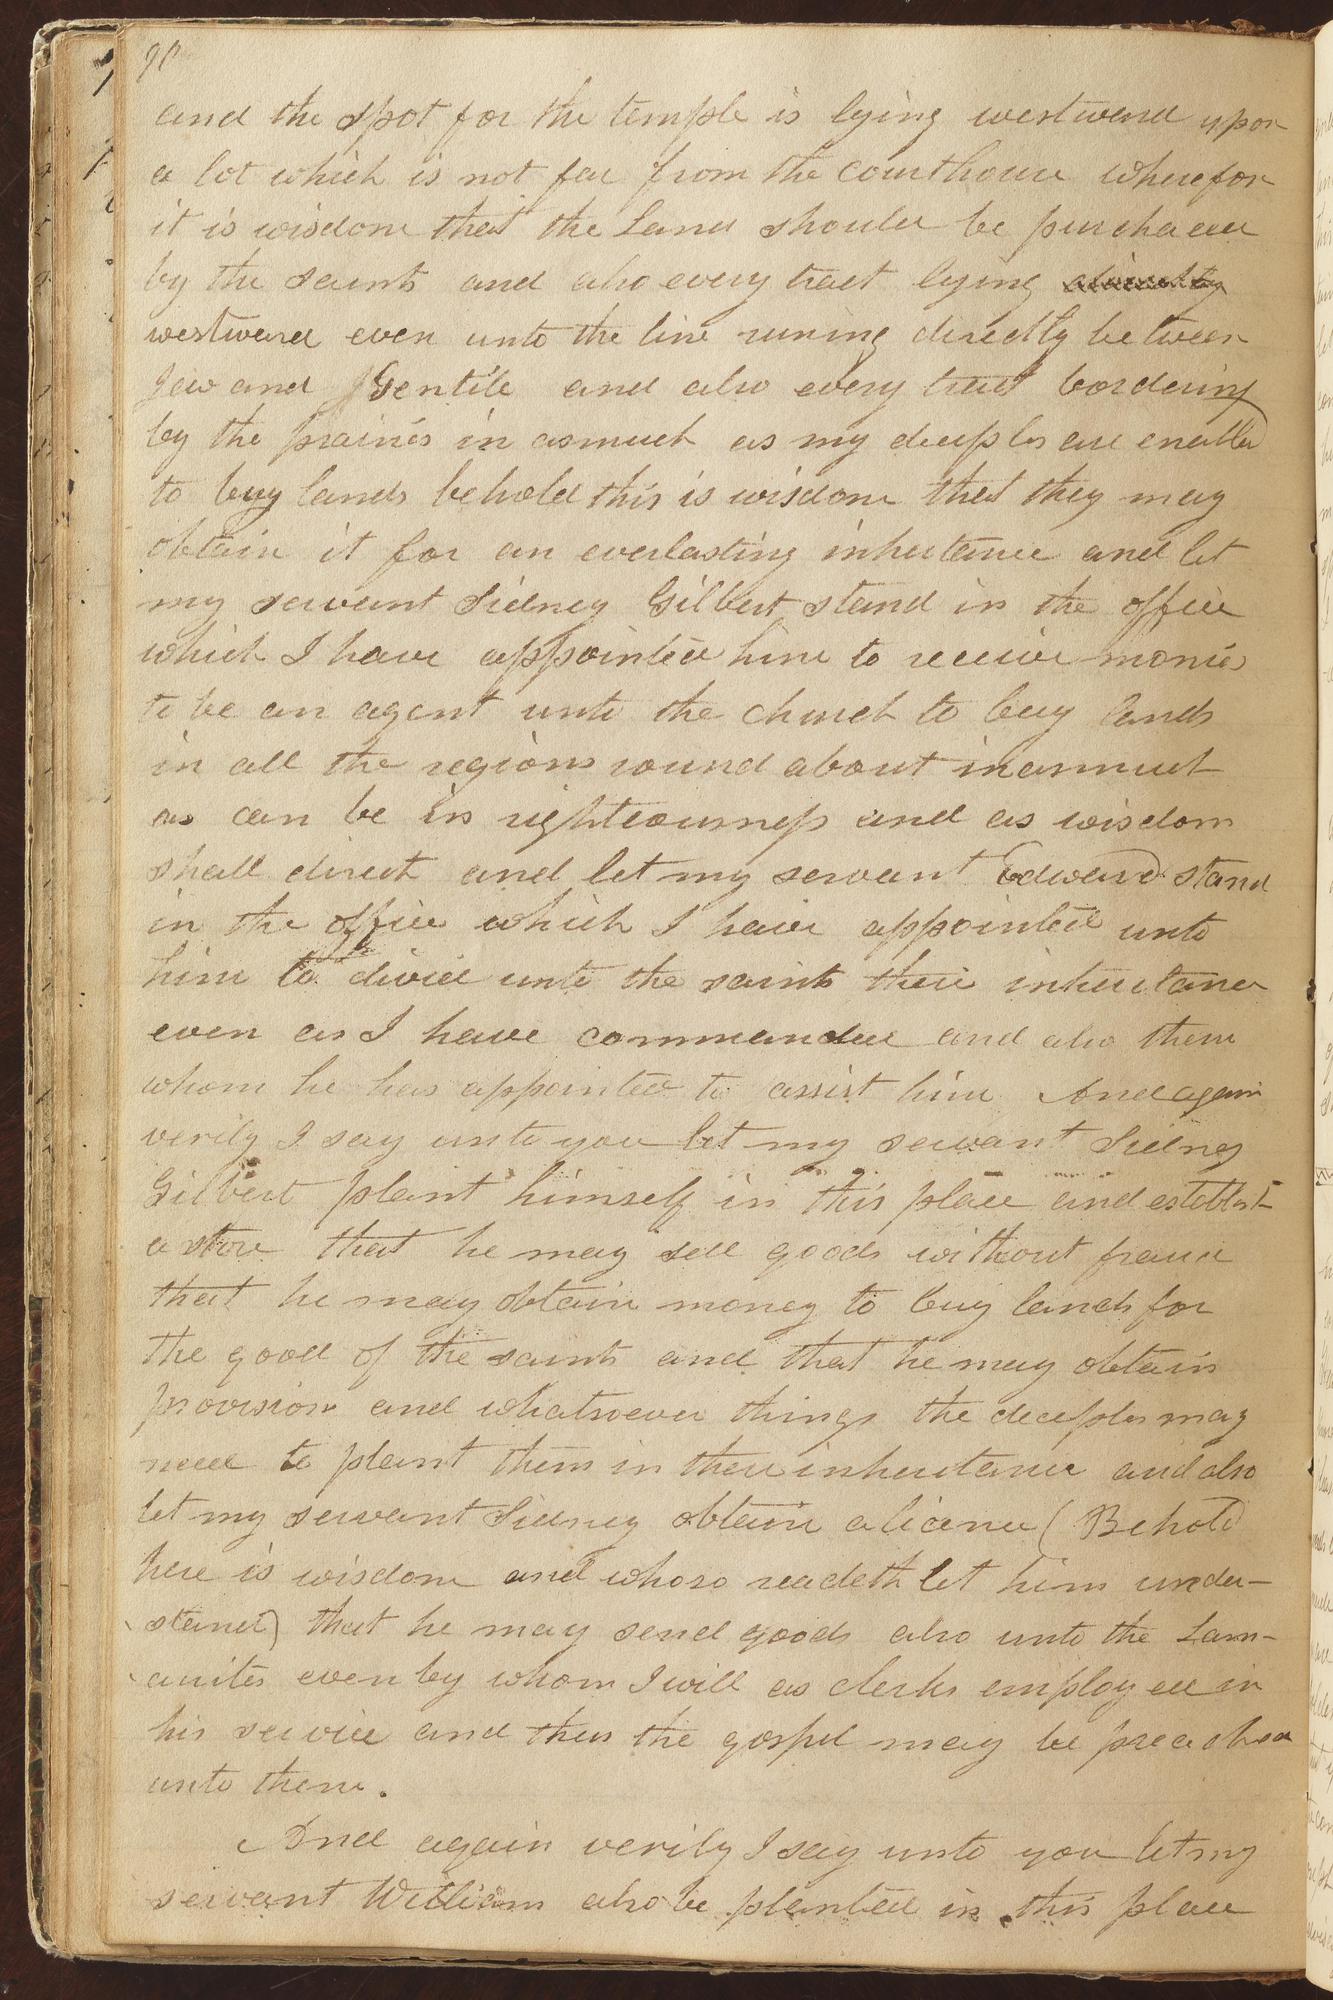 and the spot for the temple is lying westward upon
a lot which is not far from the courthouse wherefor
it is wisdom that the Land should be purchased
by the saints and also every tract lying
westward even unto the line runing directly between
Jew and Gentile and also every tract bordering
by the prairies in asmuch as my deciples are enabled
to buy lands behold this is wisdom that they may
obtain it for an everlasting inheritance and let
my servant Sidney Gilbert stand in the office
which I have appointed him to receive monies
to be an agent unto the church to buy lands
in all the regions round about inasmuch
as can be in righteousness and as wisdom
shall direct and let my servant Edward stand
in the office which I have appointed unto
him to divide unto the saints their inheritance
even as I have commanded and also them
whom he has appointed to assist him And again
verily I say unto you let my servant Sidney
Gilbert plant himself in this place and establish
a store that he may sell goods without fraud
that he may obtain money to buy lands for
the good of the saints and that he may obtain
provision and whatsoever things the deciples may
need to plant them in their inheritance and also
let my servant Sidney obtain a licence (Behold
here is wisdom and whoso readeth let him under-
stand) that he may send goods also unto the Lam-
anites even by whom I will as clerks employed in
his service and thus the gospel may be preached
unto them.
And again verily I say unto you let my
servant William also be planted in this place